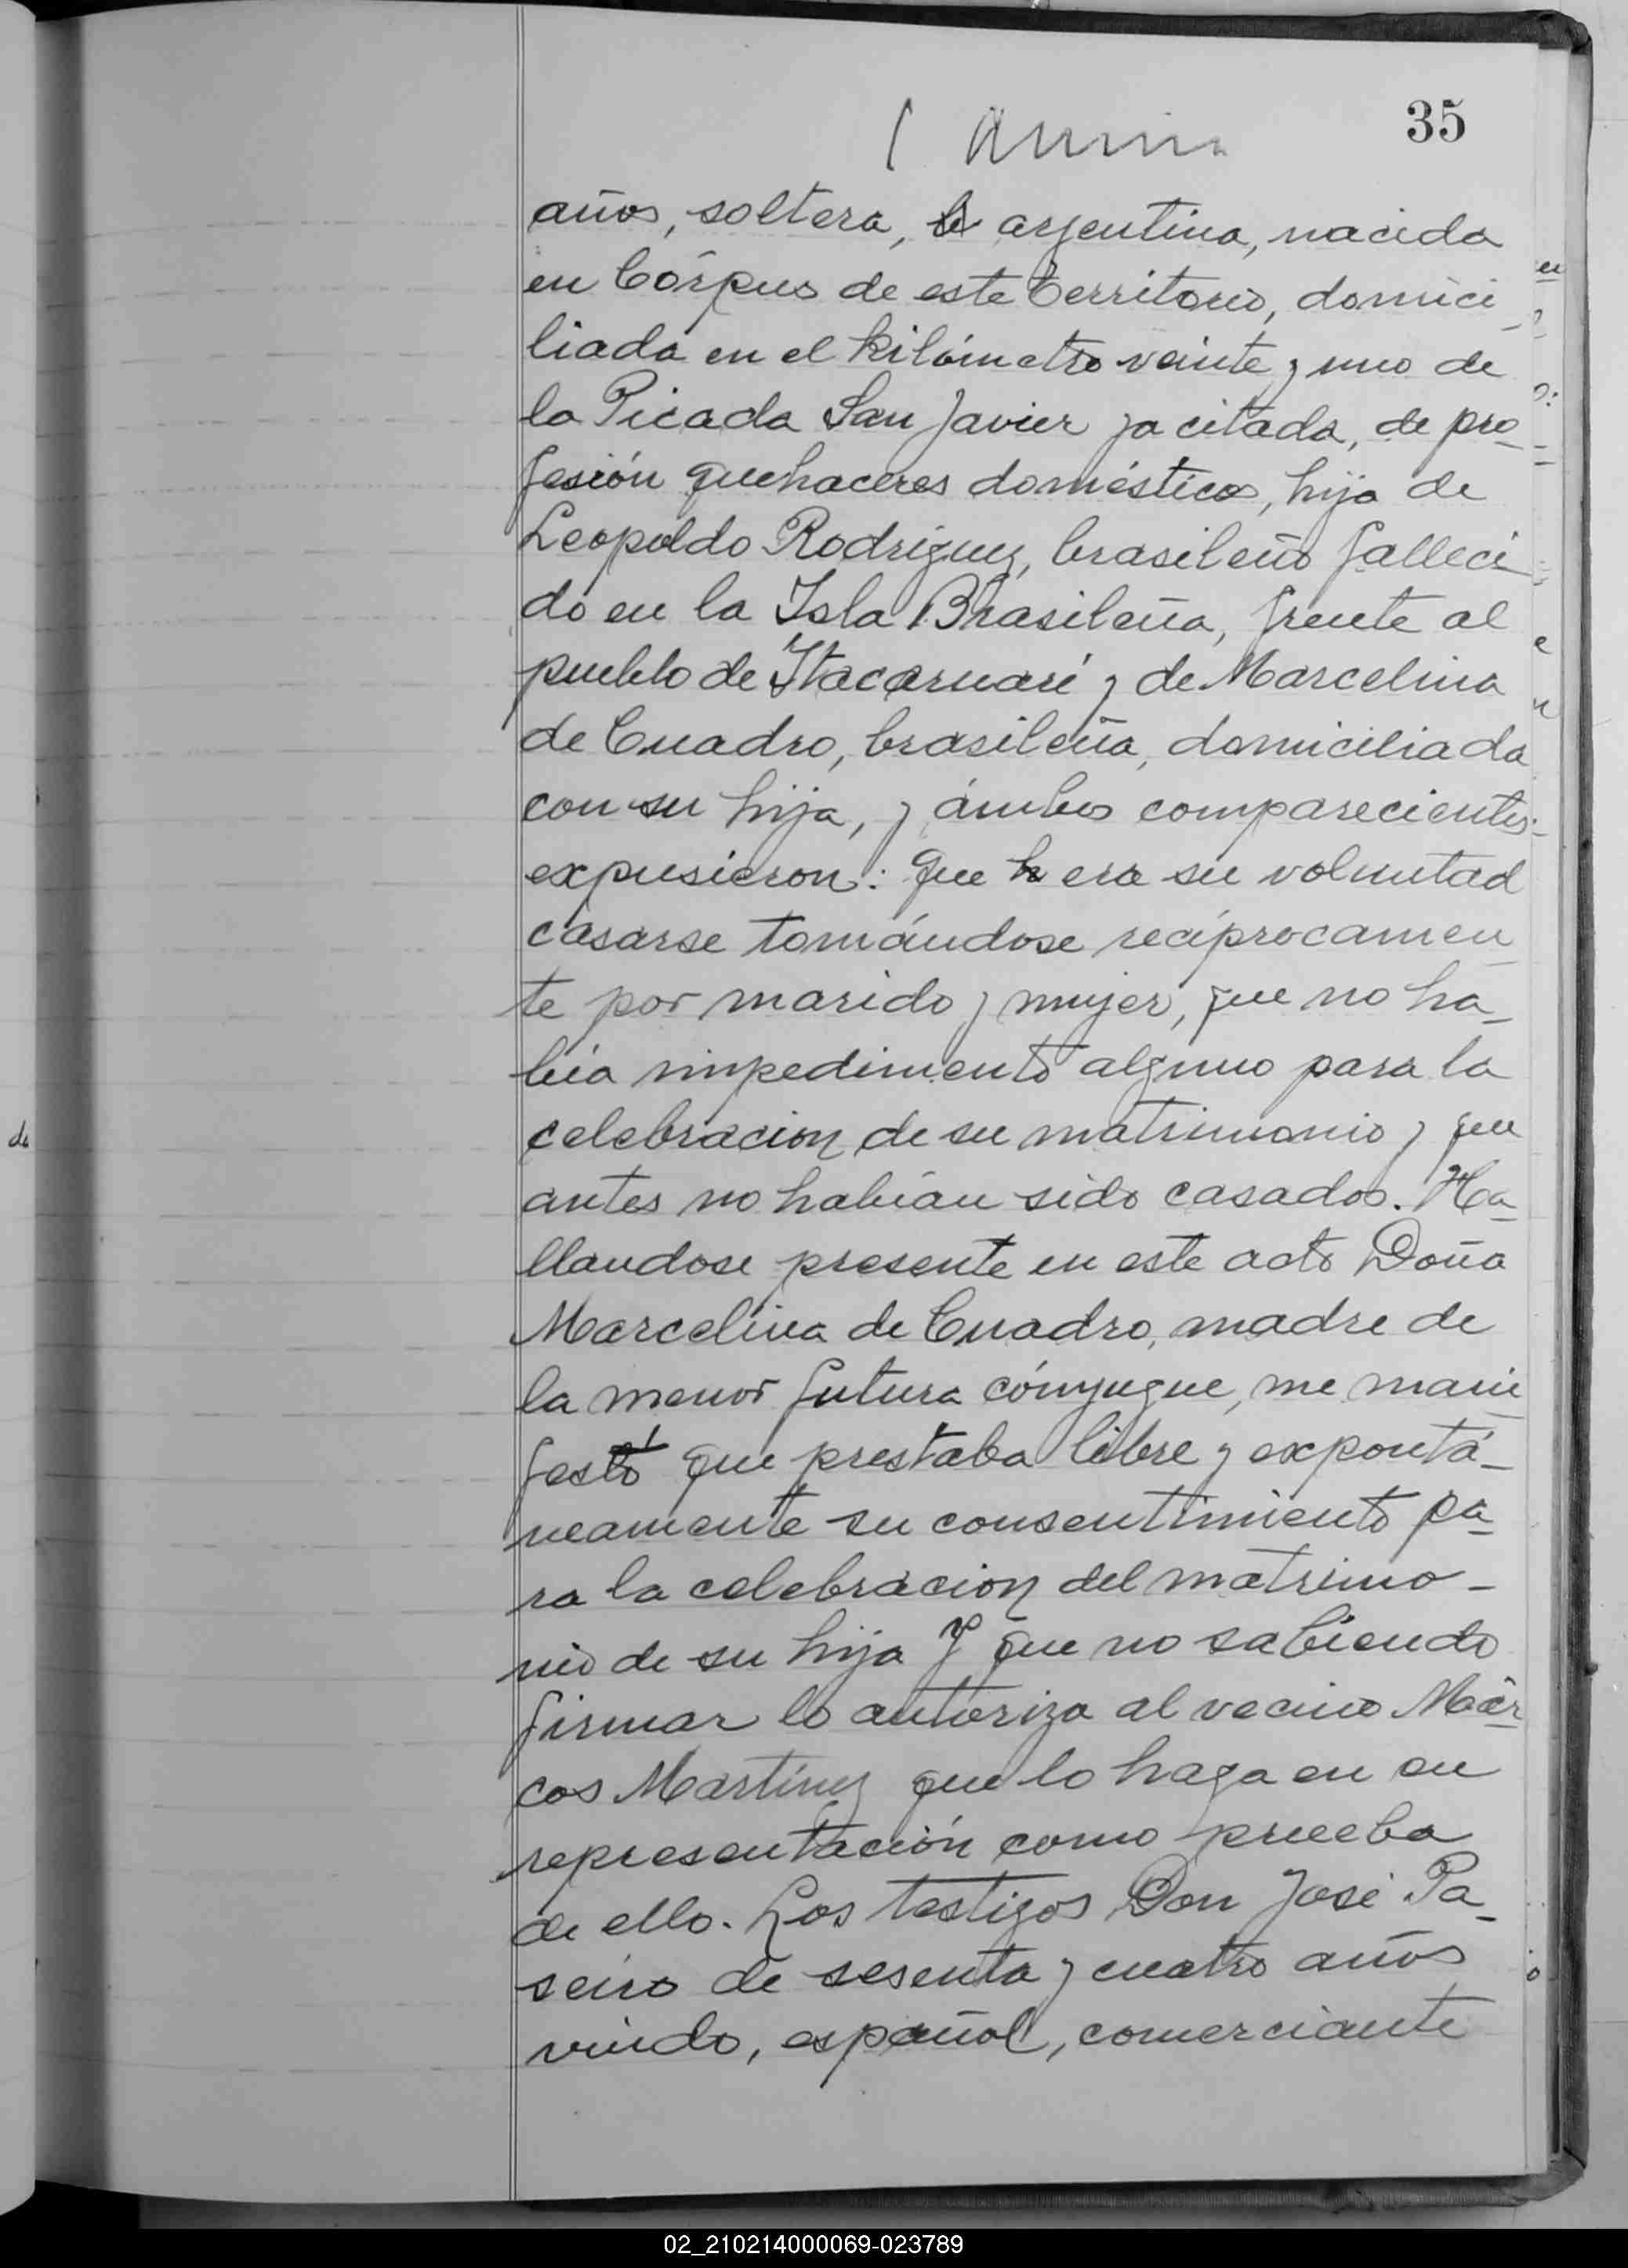 35
años, soltera, argentina, nacida
en Córpus de este territorio, domici
liada en el kilómetro veinte y uno de
la Picada San Javier ya citada, de pro_
fesión quehaceres domésticos, hija de
Leopoldo Rodriguez, brasileño falleci
do en la Isla Brasileña, frente al
pueblo de Itacaruaré y de Marcelina
de Cuadro, brasileña, domiciliada
con su hija, y ámbos comparecientes
expusieron: que era su voluntad
casarse tomándose recíprocamen_
te por marido y mujer, que no ha_
bía impedimento alguno para la
celebracion de su matrimonio y que
antes no habían sido casados. Ha_
llandose presente en este acto Doña
Marcelina de Cuadro, madre de
la menor futura cónyugue, me mani_
festó que prestaba libre y expontá_
neamente su consentimiento pa_
ra la celebracion del matrimo_
nio de su hija y que no sabiendo
firmar lo autoriza al vecino Már_
cos Martínez que lo haga en su
representación como prueba
de ello. Los testigos Don José Pa_
seiro de sesenta y cuatro años
viudo, español, comerciante
de
02_210214000069-023789